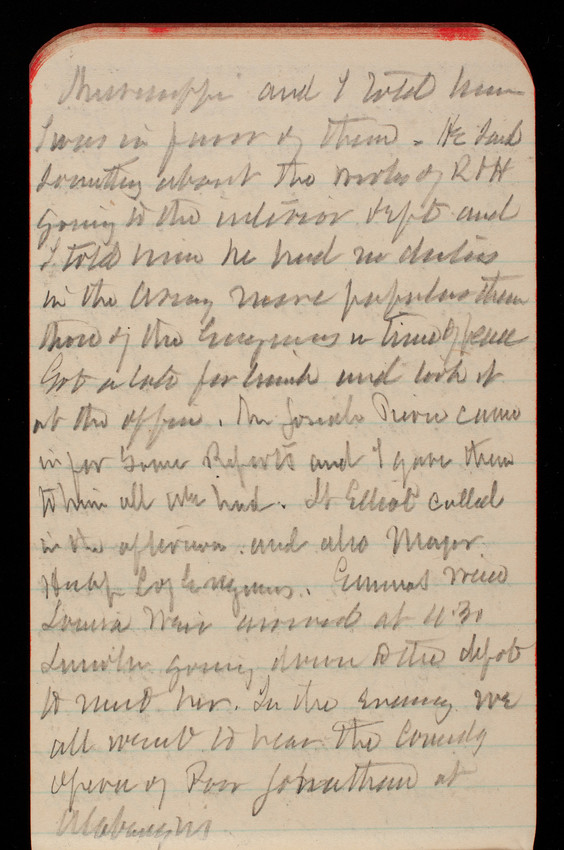 Mississippi and I told him
I was in favor of them. He said
something about the works of R & H
going to the interior dept and
I told him he had no duties
in the Army more popular than
those of the Engineers in time of peace
Got a late for lunch and took it
at the office. Mr Josiah Pierce came
in for some Reports and I gave them
to him all we had. Lt Elliot called
in the afternoon. and also Major
Corps Engineers. Emma's niece
Louisa Weir arrived at 4.30
Lincoln going down to the depot
to meet her. In the evening we
all went to hear the Comedy
opera of Poor Jonathan at
Albaughs